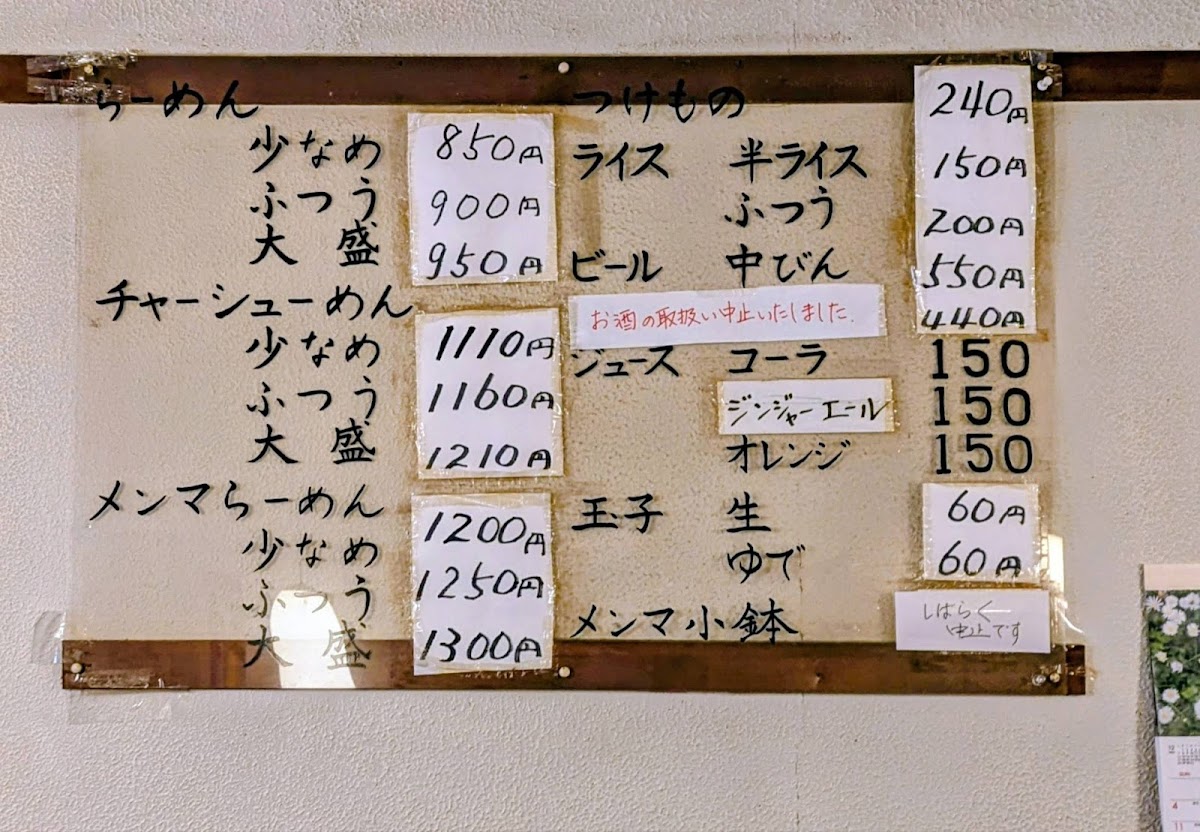 らーめん
少なめ 850円
ふつう 900円
大盛 950円
チャーシューめん
少なめ 1110円
ふつう 1160円
大盛 1210円
メンマらーめん
少なめ 1200円
ふつう 1250円
大盛 1300円
つけもの 240円
ライス 半ライス 150円
ふつう 200円
ビール 中びん 550円
お酒の取扱い中止いたしました. 440円
ジュース コーラ 150
ジンジャーエール 150
オレンジ 150
玉子 生 60円
ゆで 60円
メンマ小鉢 しばらく
中止です